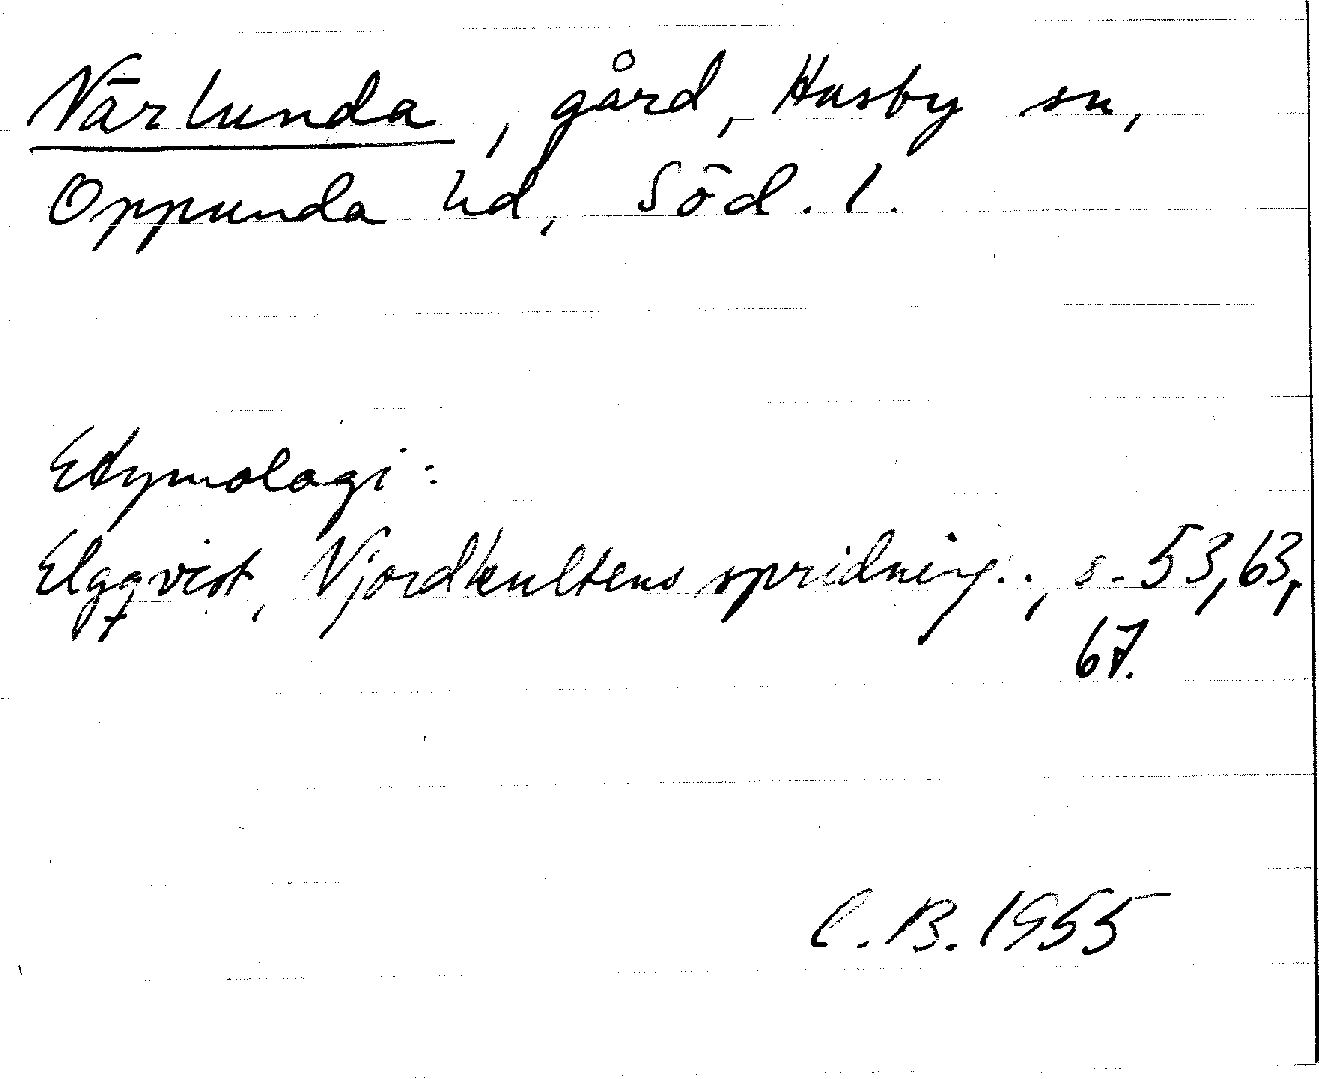 Närlunda, gård, Husby sn,
Oppunda hd, Söd. l.
Etymologi:
Elgqvist, Njordkultens spridning.., s. 53, 63,
67.
C. B. 1955